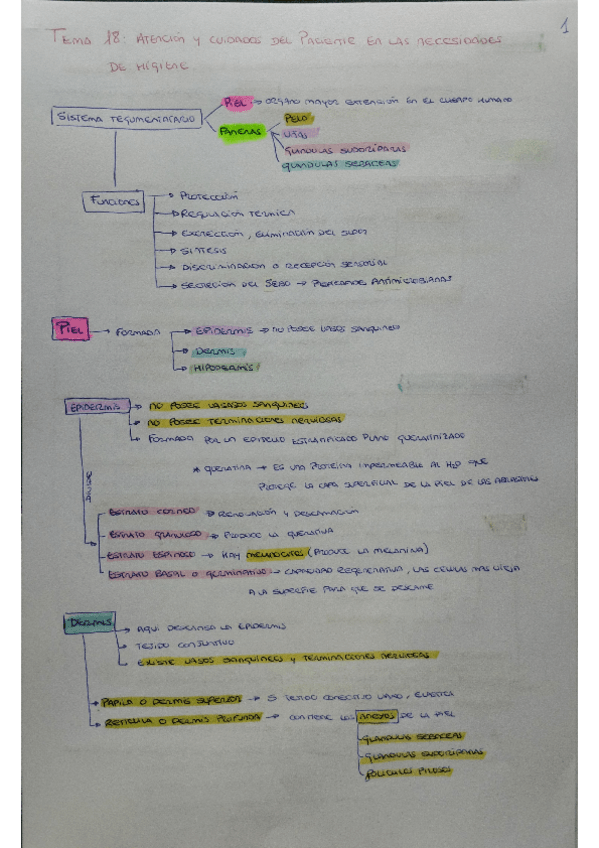 1
TEMA 18: ATENCIÓN Y CUIDADOS DEL PACIENTE EN LAS NECESIDADES
DE HIGIENE
SISTEMA TEGUMENTARIO
PIEL → ORGANO MAYOR EXTENCIÓN EN EL CUERPO HUMANO
FANERAS
PELO
UÑAS
GLANDULAS SUDORIPARAS
GLANDULAS SEBACEAS
FUNCIONES
→ PROTECCIÓN
→ REGULACION TERMICA
→ EXCRECCIÓN, ELIMINACION DEL SUDOR
→ SINTESIS
→ DISCRIMINACION O RECEPCION SENSORIAL
→ SECRECION DEL SEBO → ANTIMICROBIANAS
PIEL → FORMADA
→ EPIDERMIS → NO POSEE VASOS SANGUINEOS
→ DERMIS
→ HIPODERMIS
EPIDERMIS
→ NO POSEE VASOS SANGUINEOS
→ NO POSEE TERMINACIONES NERVIOSAS
→ FORMADA POR UN EPITELIO ESTRATIFICADO PLANO QUERATINIZADO
* QUERATINA → ES UNA PROTEINA IMPERMEABLE AL H2O QUE
PROTEGE LA CAPA SUPERFICIAL DE LA PIEL DE LAS
DIVIDE
ESTRATO CORNEO → RENOVACIÓN Y DESCAMACIÓN
ESTRATO GRANULOSO → PRODUCE LA QUERATINA
ESTRATO ESPINOSO → HAY MELANOCITOS (PRODUCE LA MELANINA)
ESTRATO BASAL O GERMINATIVO → CAPACIDAD REGENERATIVA, LAS CELULAS MAS VIEJA
A LA SUPERFICIE PARA QUE SE DESCAME
DERMIS
→ AQUI DESCANSA LA EPIDERMIS
→ TEJIDO CONJUNTIVO
→ EXISTE VASOS SANGUINEOS Y TERMINACIONES NERVIOSAS
→ PAPILA O DERMIS SUPERIOR → TEJIDO CONECTIVO LAXO, ELASTICA
→ RETICULA O DERMIS PROFUNDA → CONTIENE LOS ANEXOS DE LA PIEL
GLANDULAS SEBACEAS
GLANDULAS SUDORIPARAS
FOLICULOS PILOSOS